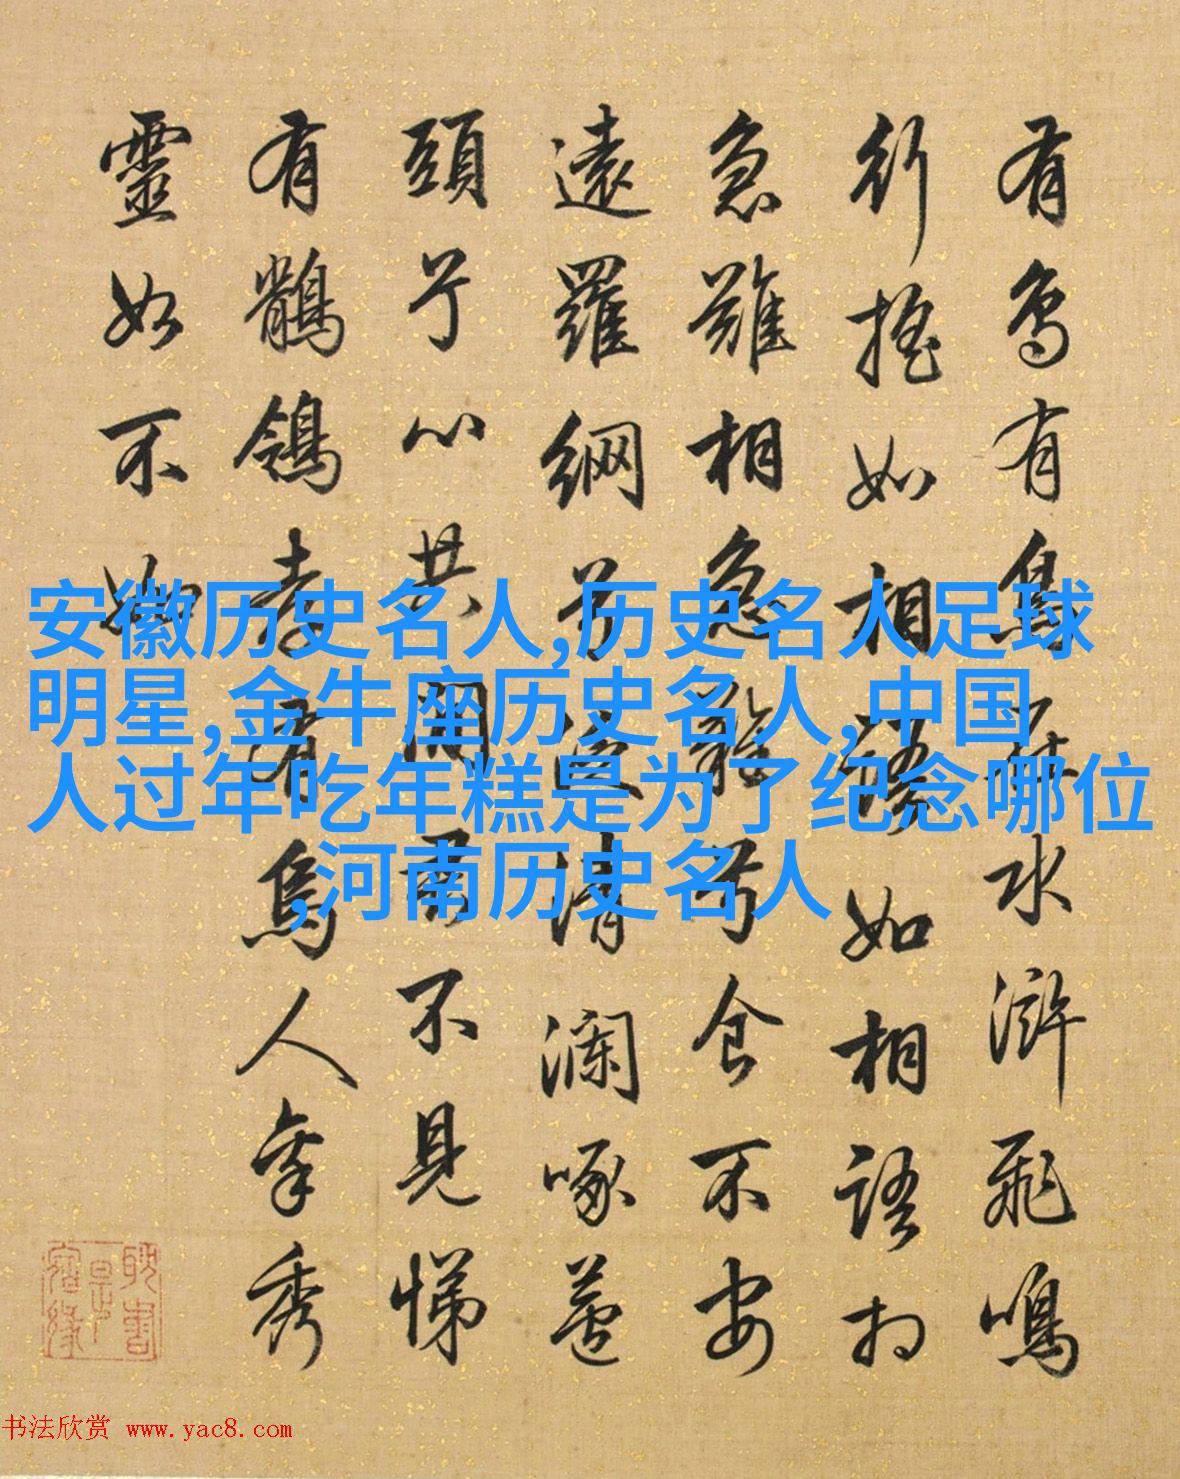 安徽历史名人,历史名人足球
明星,金牛座历史名人,中国
人过年吃年糕是为了纪念哪位
,河南历史名人
有鳥有鳥在水滸飛鳴
行搖如相語如相語於
急難相急難兮食不安
遠羅網兮清瀾啄
頭兮心共閒君不見悌
有鶺鴒孝有烏人稟秀
靈如不如
书法欣赏 www.yac8.com